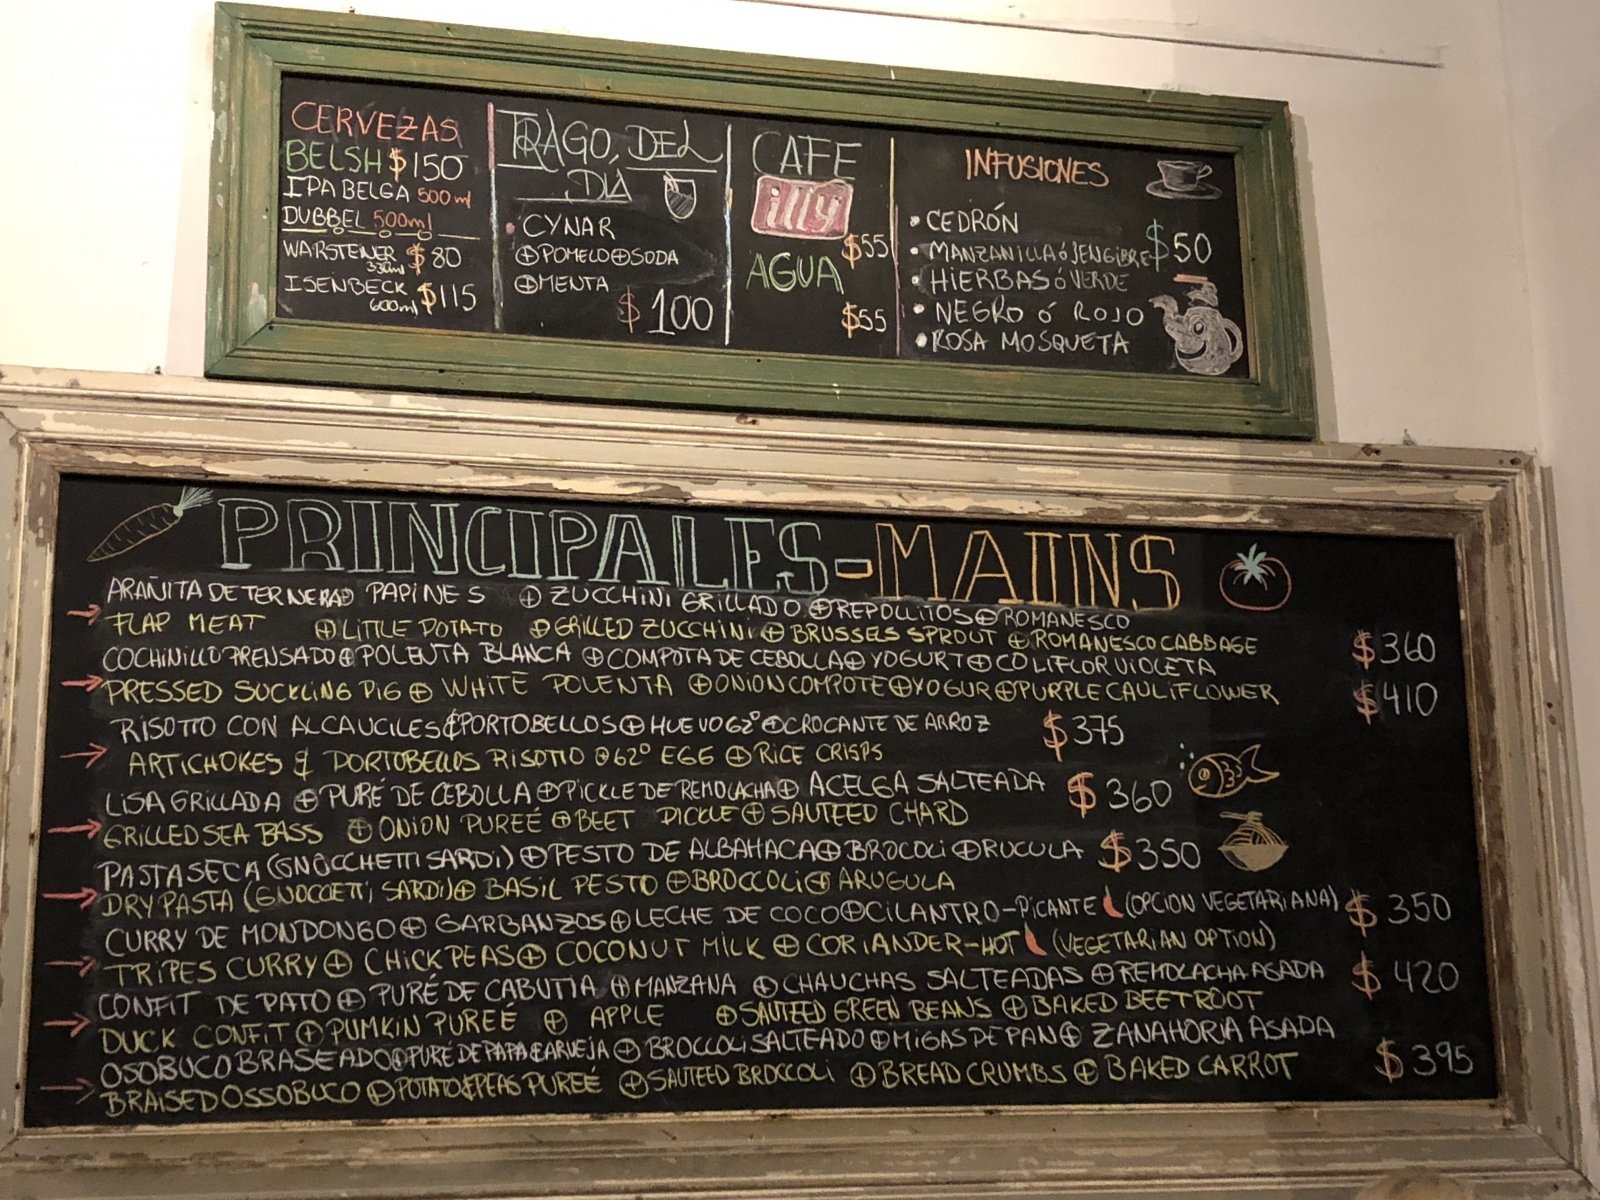 CERVEZAS
BELSH $150
IPA BELGA 500ml
DUBBEL 500ml
WARSTEINER $80
330ml
ISENBECK $115
600ml
TRAGO DEL
DIA
• CYNAR
⊕POMELO⊕SODA
⊕MENTA
$100
CAFE
illy
$55
AGUA
$55
INFUSIONES
• CEDRÓN
• MANZANILLA ó JENGIBRE $50
• HIERBAS ó VERDE
• NEGRO ó ROJO
• ROSA MOSQUETA
PRINCIPALES-MAINS
ARAÑITA DE TERNERA⊕ PAPINES ⊕ ZUCCHINI GRILLADO ⊕ REPOLLITOS ⊕ ROMANESCO
→ FLAP MEAT ⊕ LITTLE POTATO ⊕ GRILLED ZUCCHINI ⊕ BRUSSELS SPROUT ⊕ ROMANESCO CABBAGE $360
COCHINILLO PRENSADO ⊕ POLENTA BLANCA ⊕ COMPOTA DE CEBOLLA ⊕ YOGURT ⊕ COLIFLOR VIOLETA
→ PRESSED SUCKLING PIG ⊕ WHITE POLENTA ⊕ ONION COMPOTE ⊕ YOGUR ⊕ PURPLE CAULIFLOWER $410
RISOTTO CON ALCAUCILES & PORTOBELLOS ⊕ HUEVO 62° ⊕ CROCANTE DE ARROZ $375
→ ARTICHOKES & PORTOBELLOS RISOTTO ⊕ 62° EGG ⊕ RICE CRISPS
LISA GRILLADA ⊕ PURÉ DE CEBOLLA ⊕ PICKLE DE REMOLACHA ⊕ ACELGA SALTEADA $360
→ GRILLED SEA BASS ⊕ ONION PUREÉ ⊕ BEET PICKLE ⊕ SAUTEED CHARD
PASTA SECA (GNOCCHETTI SARDI) ⊕ PESTO DE ALBAHACA ⊕ BROCOLI ⊕ RUCULA $350
→ DRY PASTA (GNOCCETTI SARDI) ⊕ BASIL PESTO ⊕ BROCCOLI ⊕ ARUGULA
CURRY DE MONDONGO ⊕ GARBANZOS ⊕ LECHE DE COCO ⊕ CILANTRO-PICANTE (OPCION VEGETARIANA) $350
→ TRIPES CURRY ⊕ CHICK PEAS ⊕ COCONUT MILK ⊕ CORIANDER-HOT (VEGETARIAN OPTION)
CONFIT DE PATO ⊕ PURÉ DE CABUTIA ⊕ MANZANA ⊕ CHAUCHAS SALTEADAS ⊕ REMOLACHA ASADA $420
→ DUCK CONFIT ⊕ PUMKIN PUREÉ ⊕ APPLE ⊕ SAUTEED GREEN BEANS ⊕ BAKED BEETROOT
OSOBUCO BRASEADO ⊕ PURÉ DE PAPA & ARVEJA ⊕ BROCCOLI SALTEADO ⊕ MIGAS DE PAN ⊕ ZANAHORIA ASADA $395
→ BRAISED OSSOBUCO ⊕ POTATO & PEAS PUREÉ ⊕ SAUTEED BROCCOLI ⊕ BREAD CRUMBS ⊕ BAKED CARROT